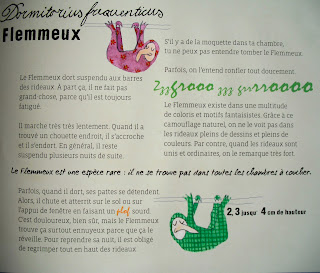 Dormitorius frequenticus
Flemmeux
Le Flemmeux dort suspendu aux barres
des rideaux. À part ça, il ne fait pas
grand-chose, parce qu'il est toujours
fatigué.
Il marche très très lentement. Quand il a
trouvé un chouette endroit, il s'accroche
et il s'endort. En général, il reste
suspendu plusieurs nuits de suite.
S'il y a de la moquette dans ta chambre,
tu ne peux pas entendre tomber le Flemmeux.
Parfois, on l'entend ronfler tout doucement.
Zzzgrooo zzz grrroooo
Le Flemmeux existe dans une multitude
de coloris et motifs fantaisistes. Grâce à ce
camouflage naturel, on ne le voit pas dans
les rideaux pleins de dessins et pleins de
couleurs. Par contre, quand les rideaux sont
unis et ordinaires, on le remarque très fort.
Le Flemmeux est une espèce rare : il ne se trouve pas dans toutes les chambres à coucher.
Parfois, quand il dort, ses pattes se détendent.
Alors, il chute et atterrit sur le sol ou sur
l'appui de fenêtre en faisant un plof sourd.
C'est douloureux, bien sûr, mais le Flemmeux
trouve ça surtout ennuyeux parce que ça le
réveille. Pour reprendre sa nuit, il est obligé
de regrimper tout en haut des rideaux.
2,3 jusqu' 4 cm de hauteur